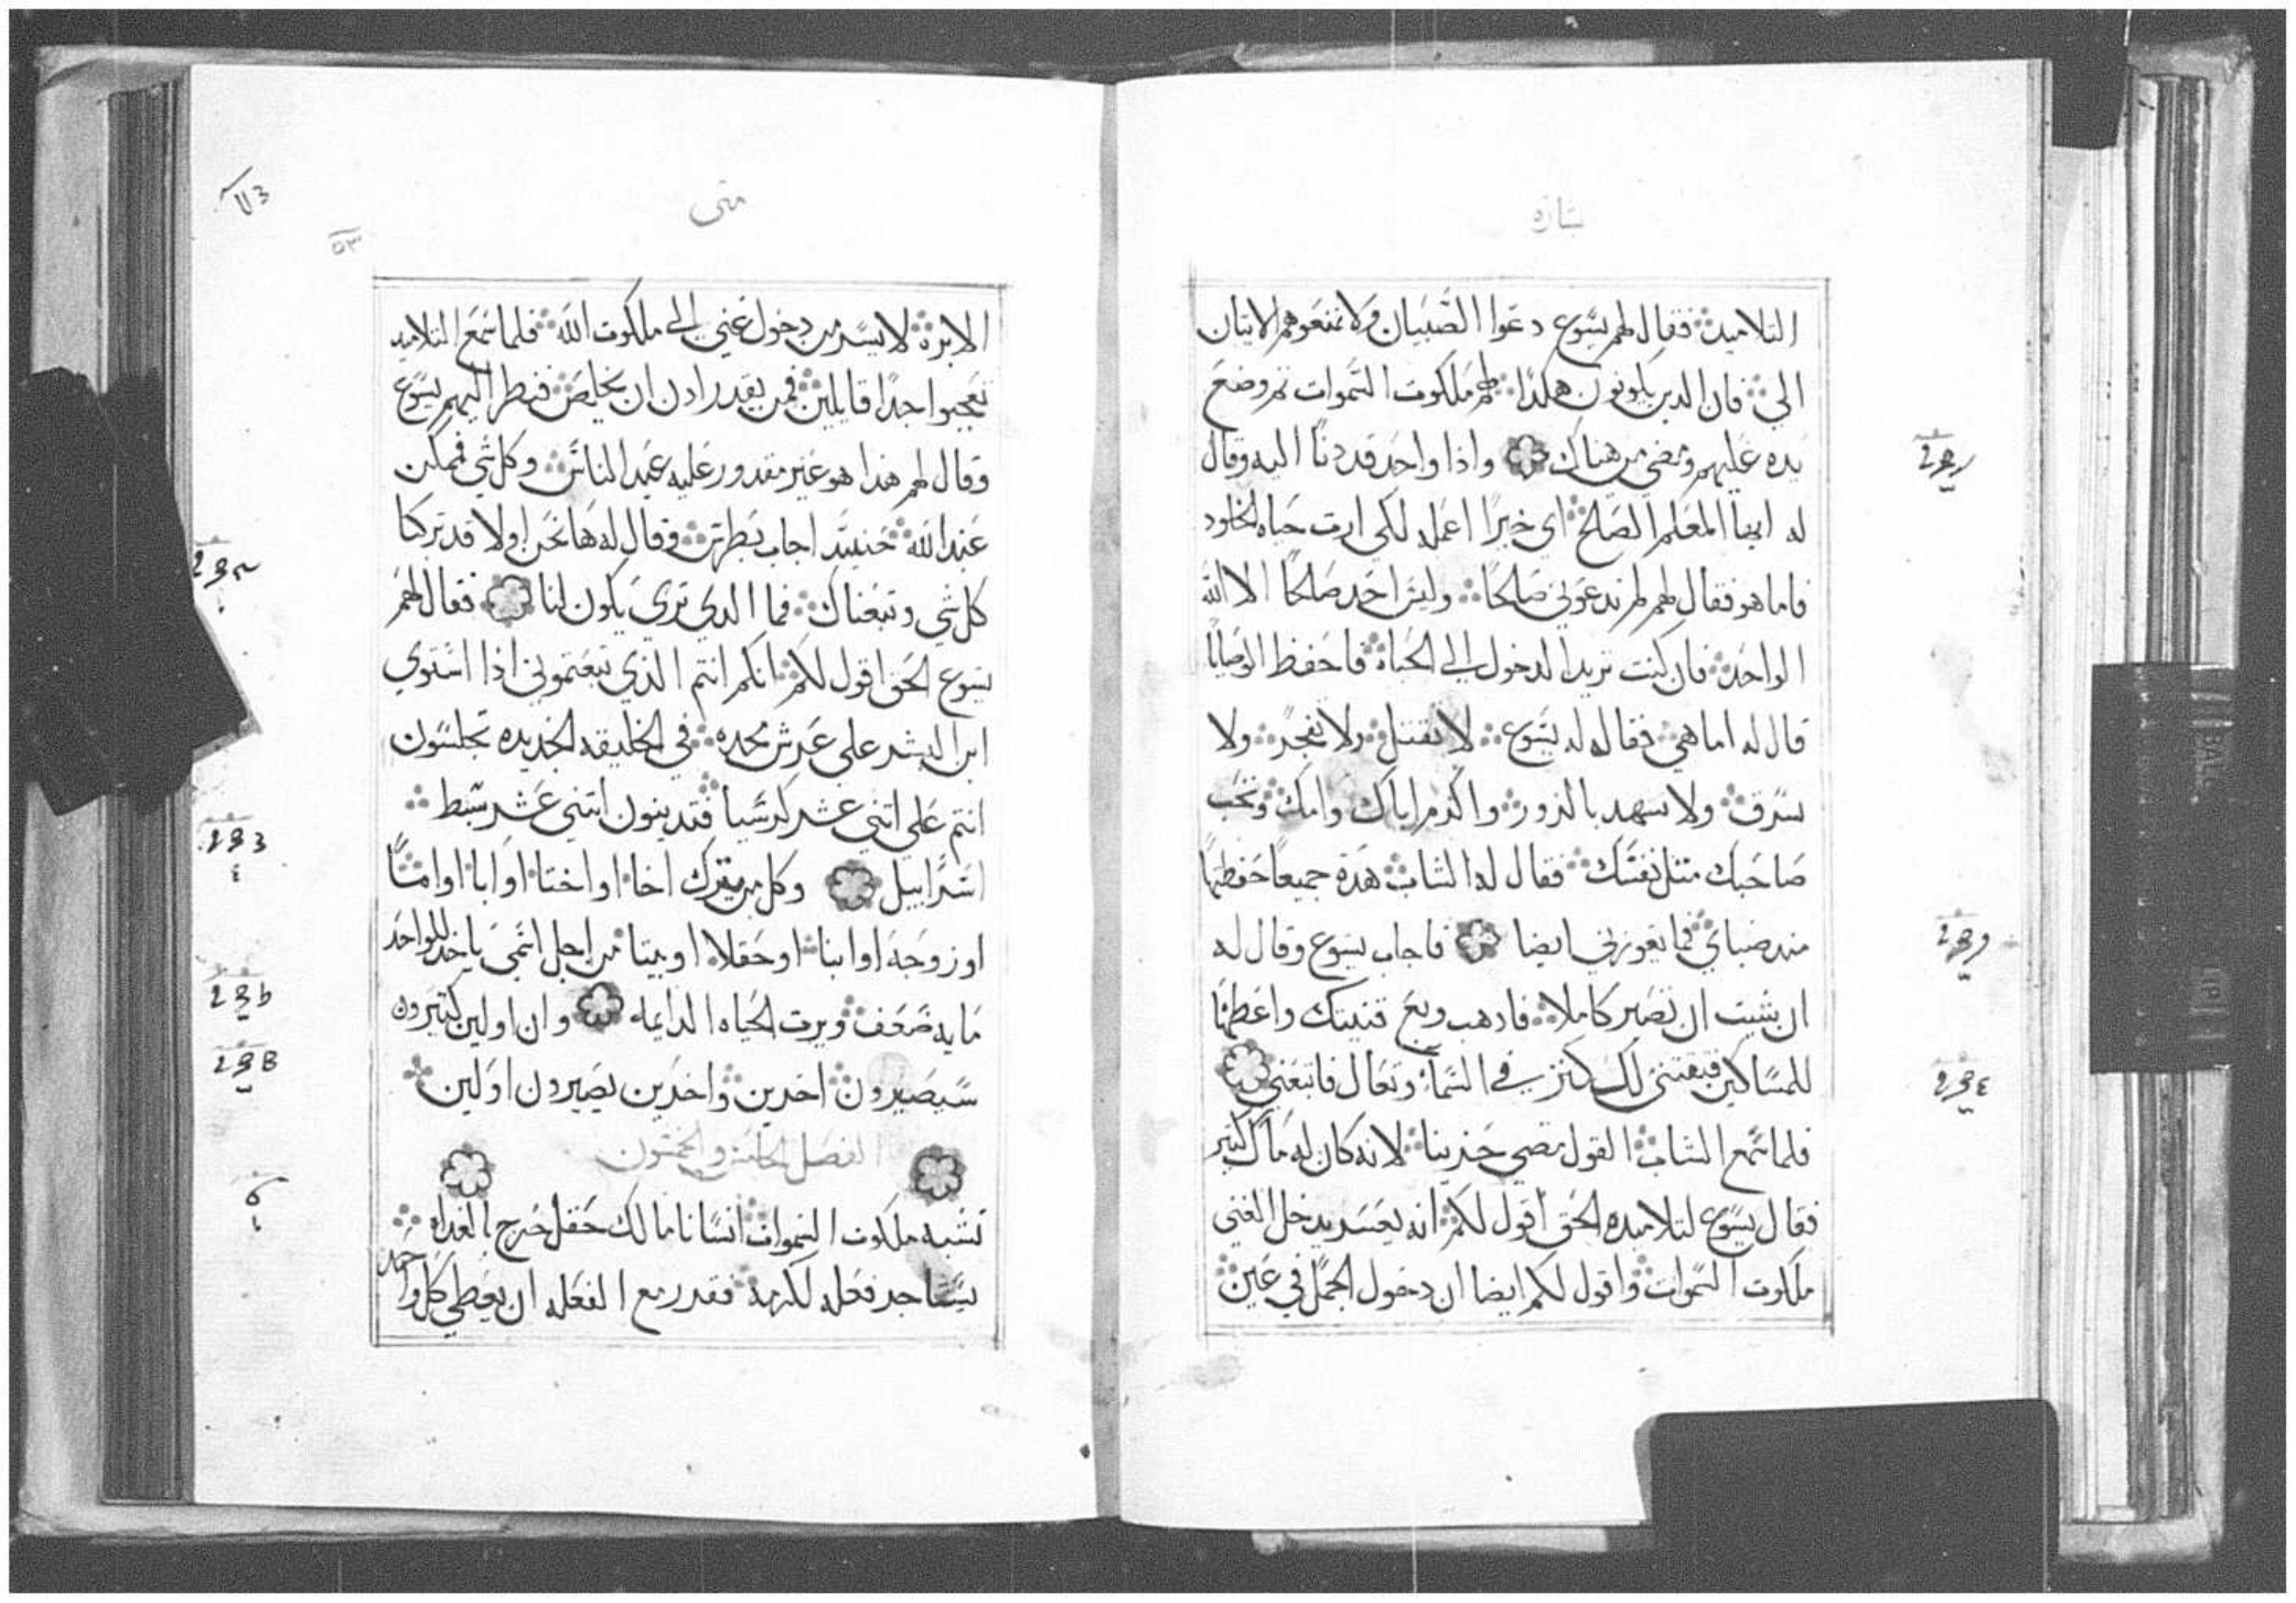 بشارة
التلاميد فقال لهم يسوع دعوا الصبيان ولا تمنعوهم الاتيان
الي فان الدين يكونون هكدا لهم ملكوت السموات تم وضع
يده عليهم ومضي من هناك واذا واحد قد دنا اليه وقال
له ايها المعلم الصالح اي خيرًا اعمله لكي ارت حياه الخلود
فاما هو فقال لهم لم تدعوني صالحًا وليس احد صالحًا الا الله
الواحد فان كنت تريد الدخول الي الحياه فاحفظ الوصايا
قال له اما هي فقال له يسوع لا تقتل ولا تفجر ولا
تسرق ولا تشهد بالزور واكرم اباك وامك وتحب
صاحبك متل نفسك فقال له الشاب هده جميعًا حفظتها
مند صباي فما تعوزني ايضا فاجاب يسوع وقال له
ان شيت ان تصير كاملا فادهب وبع قنيتك واعطها
للمساكين فتقتني لك كنز في السما وتعال فاتبعني
فلما سمع الشاب القول مضي حزينا لانه كان له مال كتير
فقال يسوع لتلاميده الحق اقول لكم انه يعسر يدخل الغني
ملكوت السموات واقول لكم ايضا ان دخول الجمل في عين
متى
٥٣
الابرة لايسر من دخول غني الي ملكوت الله فلما سمع التلاميد
تعجبوا جدًا قايلين فمن يقدر ادن ان يخلص فنطر اليهم يسوع
وقال لهم هدا هو غير مقدور عليه عند الناس وكل شي فممكن
عند الله حنيىد اجاب بطرس وقال له ها نحن اولا قد تركنا
كل شي وتبعناك فما الدي تري يكون لنا فقال لهم
يسوع الحق اقول لكم انكم انتم الذي تبعتموني اذا استوي
ابن البشر علي عرش مجده في الخليقه الجديده تجلسون
انتم علي اتني عشر كرسيا فتدينون اتني عشر سبط
اسراييل وكل من يترك اخا او اختا او ابا او امًا
او زوجه او ابنا او حقلا او بيتا من اجل اسمي ياخد للواحد
مايه ضعف ويرت الحياه الدايمه وان اولين كتيرون
سيصيرون اخرين واخرين يصيرون اولين
الفصل الخامس والخمسون
تشبه ملكوت السموات انسانا مالك حقل خرج بالغداه
يستاجر فعله لكرمه فقدر مع الفعله ان يعطي كل واحد